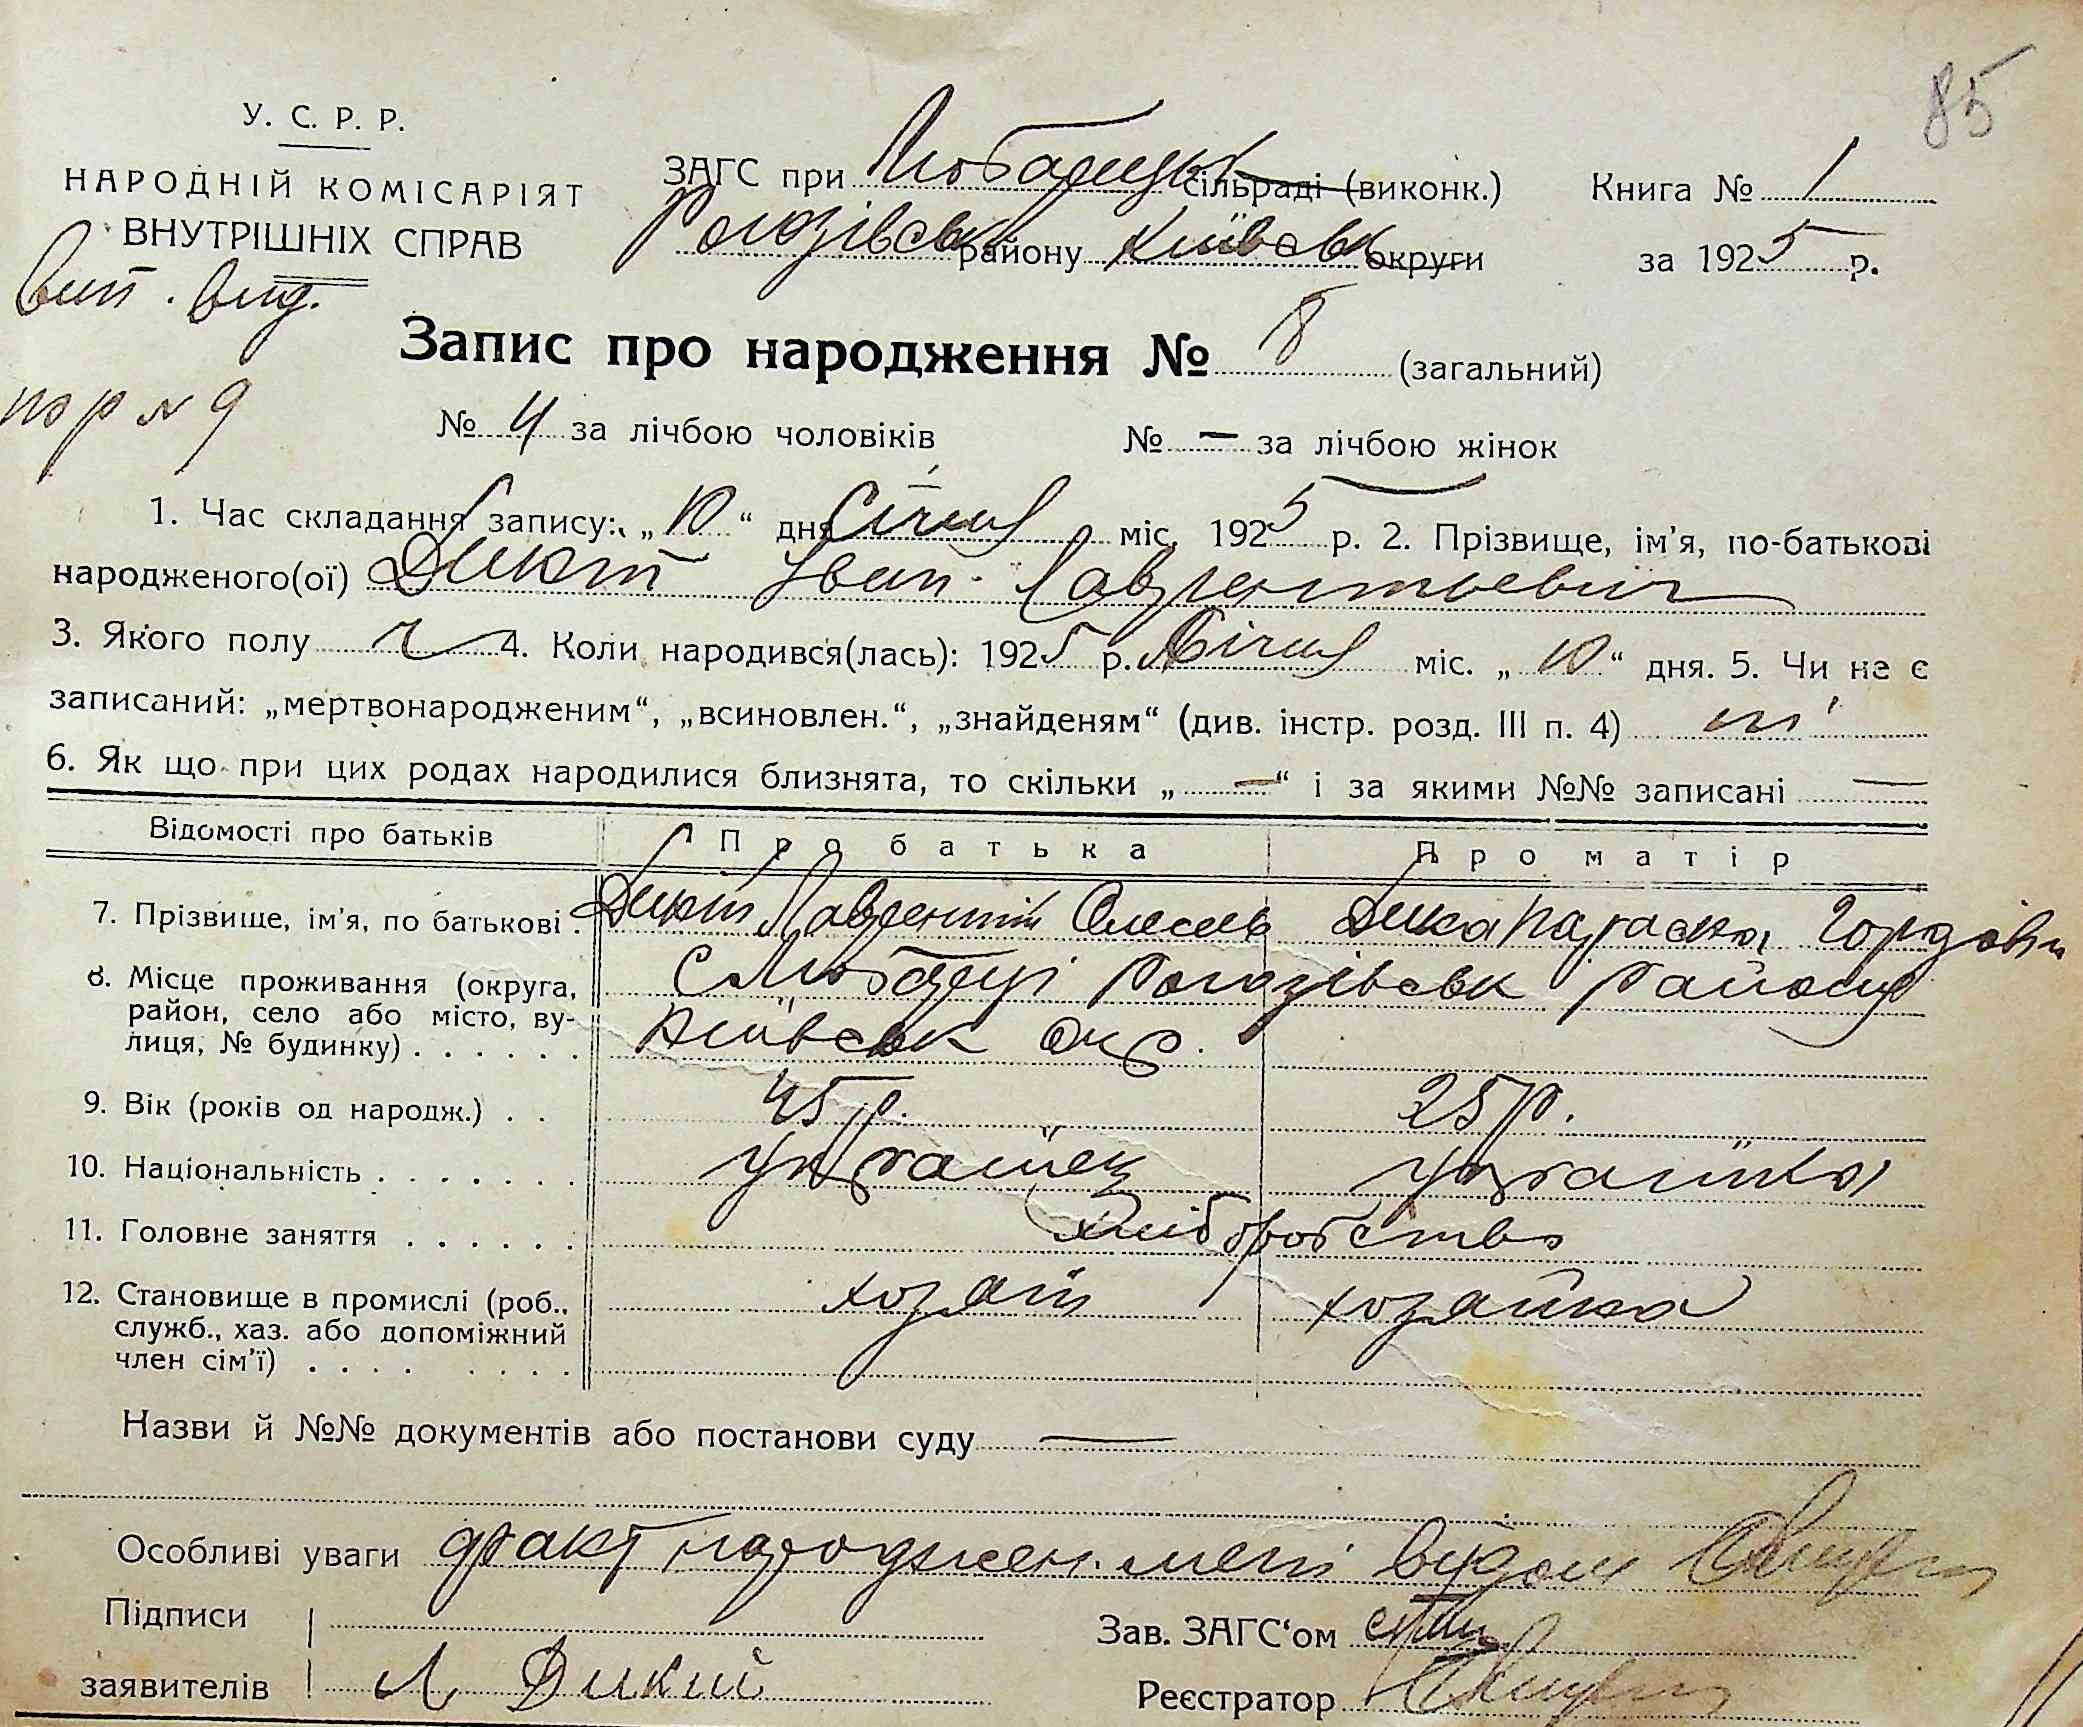 85
У. С. Р. Р.
НАРОДНІЙ КОМІСАРІЯТ
ВНУТРІШНІХ СПРАВ
ЗАГС при Любарецьк сільраді (виконк.) Книга № 1
Рогозівськ району Київськ округи за 1925 р.
Вип. вид.
пор № 9
Запис про народження № 8 (загальний)
№ 4 за лічбою чоловіків № — за лічбою жінок
1. Час складання запису: „10“ дня Січня міс. 1925 р. 2. Прізвище, ім'я, по-батькові
народженого(ої) Дикий Іван Лаврентьевич
3. Якого полу ч 4. Коли народився(лась): 1925 р. Січня міс. „10“ дня. 5. Чи не є
записаний: „мертвонародженим“, „всиновлен.“, „знайденям“ (див. інстр. розд. III п. 4) ні
6. Як що при цих родах народилися близнята, то скільки „—“ і за якими №№ записані —
Відомості про батьків Про батька Про матір
7. Прізвище, ім'я, по батькові . Дикий Лаврентій Дика Параска Гордіївн
8. Місце проживання (округа, С Любарці Рогозівськ району
район, село або місто, ву-
лиця, № будинку) . . . . . . Київськ окр.
9. Вік (років од народж.) . . 45 р. 25 р.
10. Національність . . . . . . . Українец Українка
11. Головне заняття . . . . . . хліборобство
12. Становище в промислі (роб., хозяін хозяйка
служб., хаз. або допоміжний
член сім'ї) . . . . . . . .
Назви й №№ документів або постанови суду —
Особливі уваги факт народжен. мені відом
Підписи
Зав. ЗАГС'ом
заявителів Л Дикий
Реєстратор